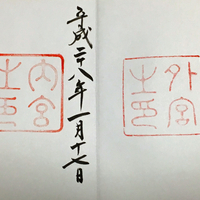 外宮
之印
平成二十八年一月十七日
内宮
之印